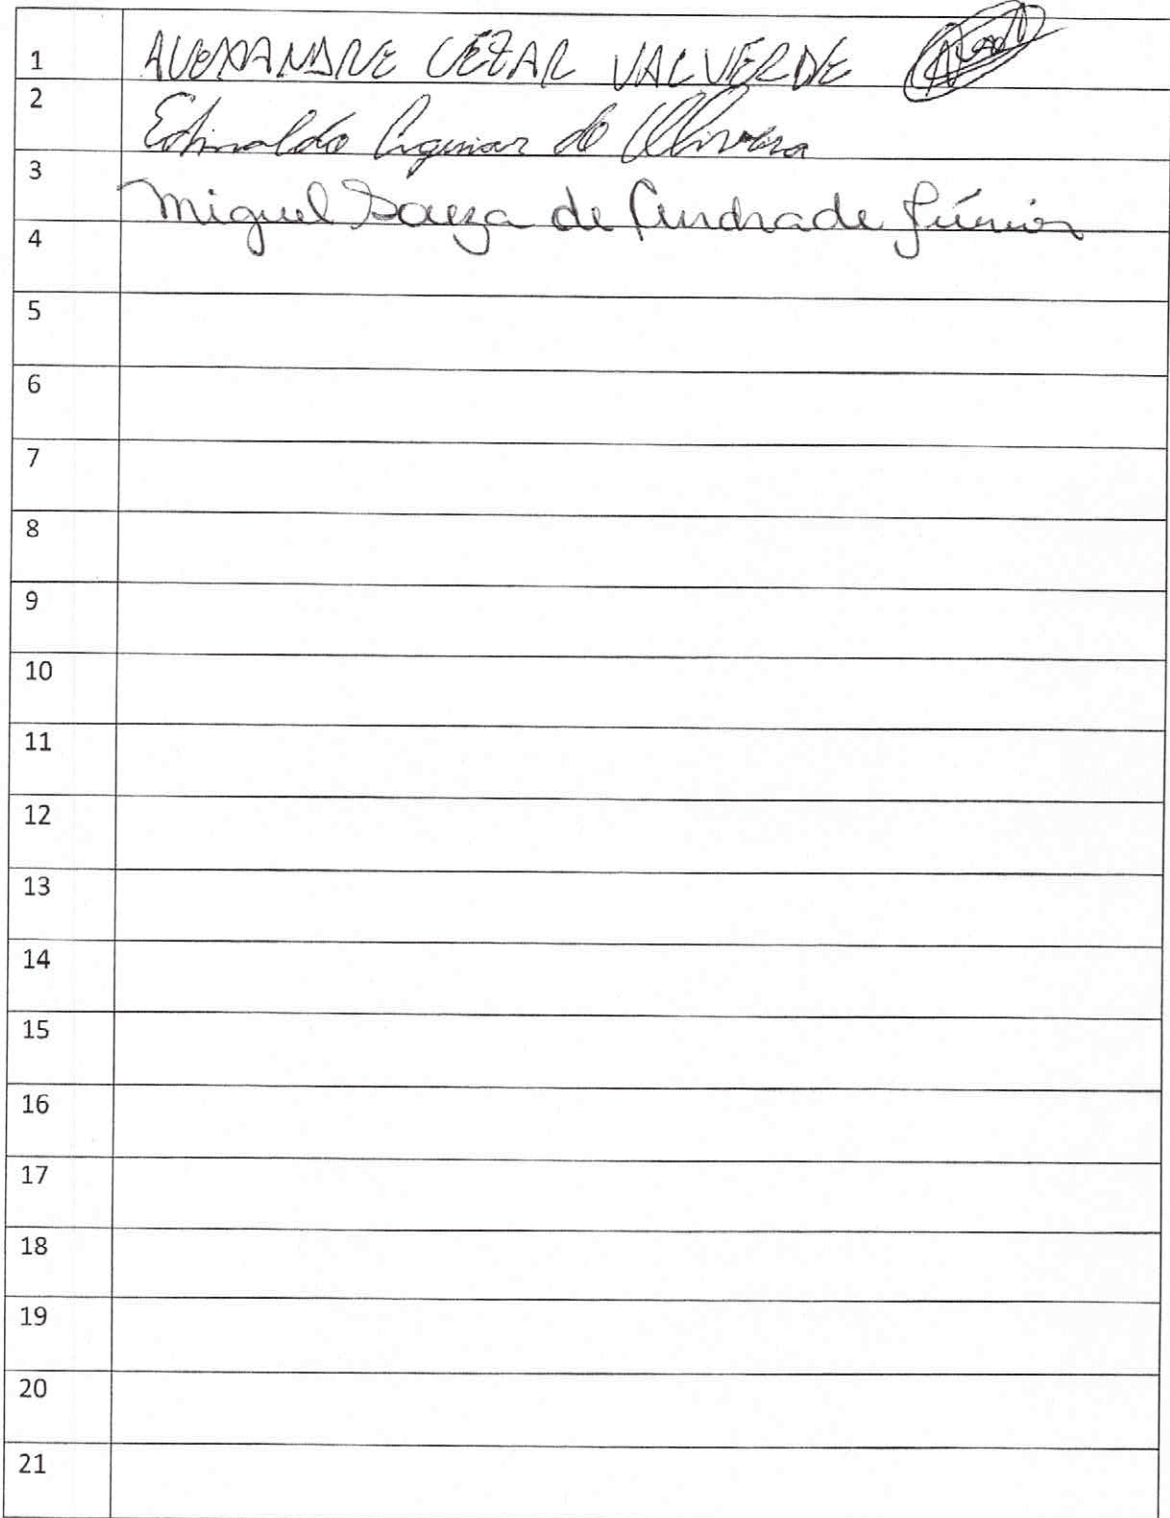 1 ALEXANDRE CEZAR VALVERDE
2 Edinaldo Aguiar de Oliveira
3 Miguel Souza de Andrade Júnior
4
5
6
7
8
9
10
11
12
13
14
15
16
17
18
19
20
21